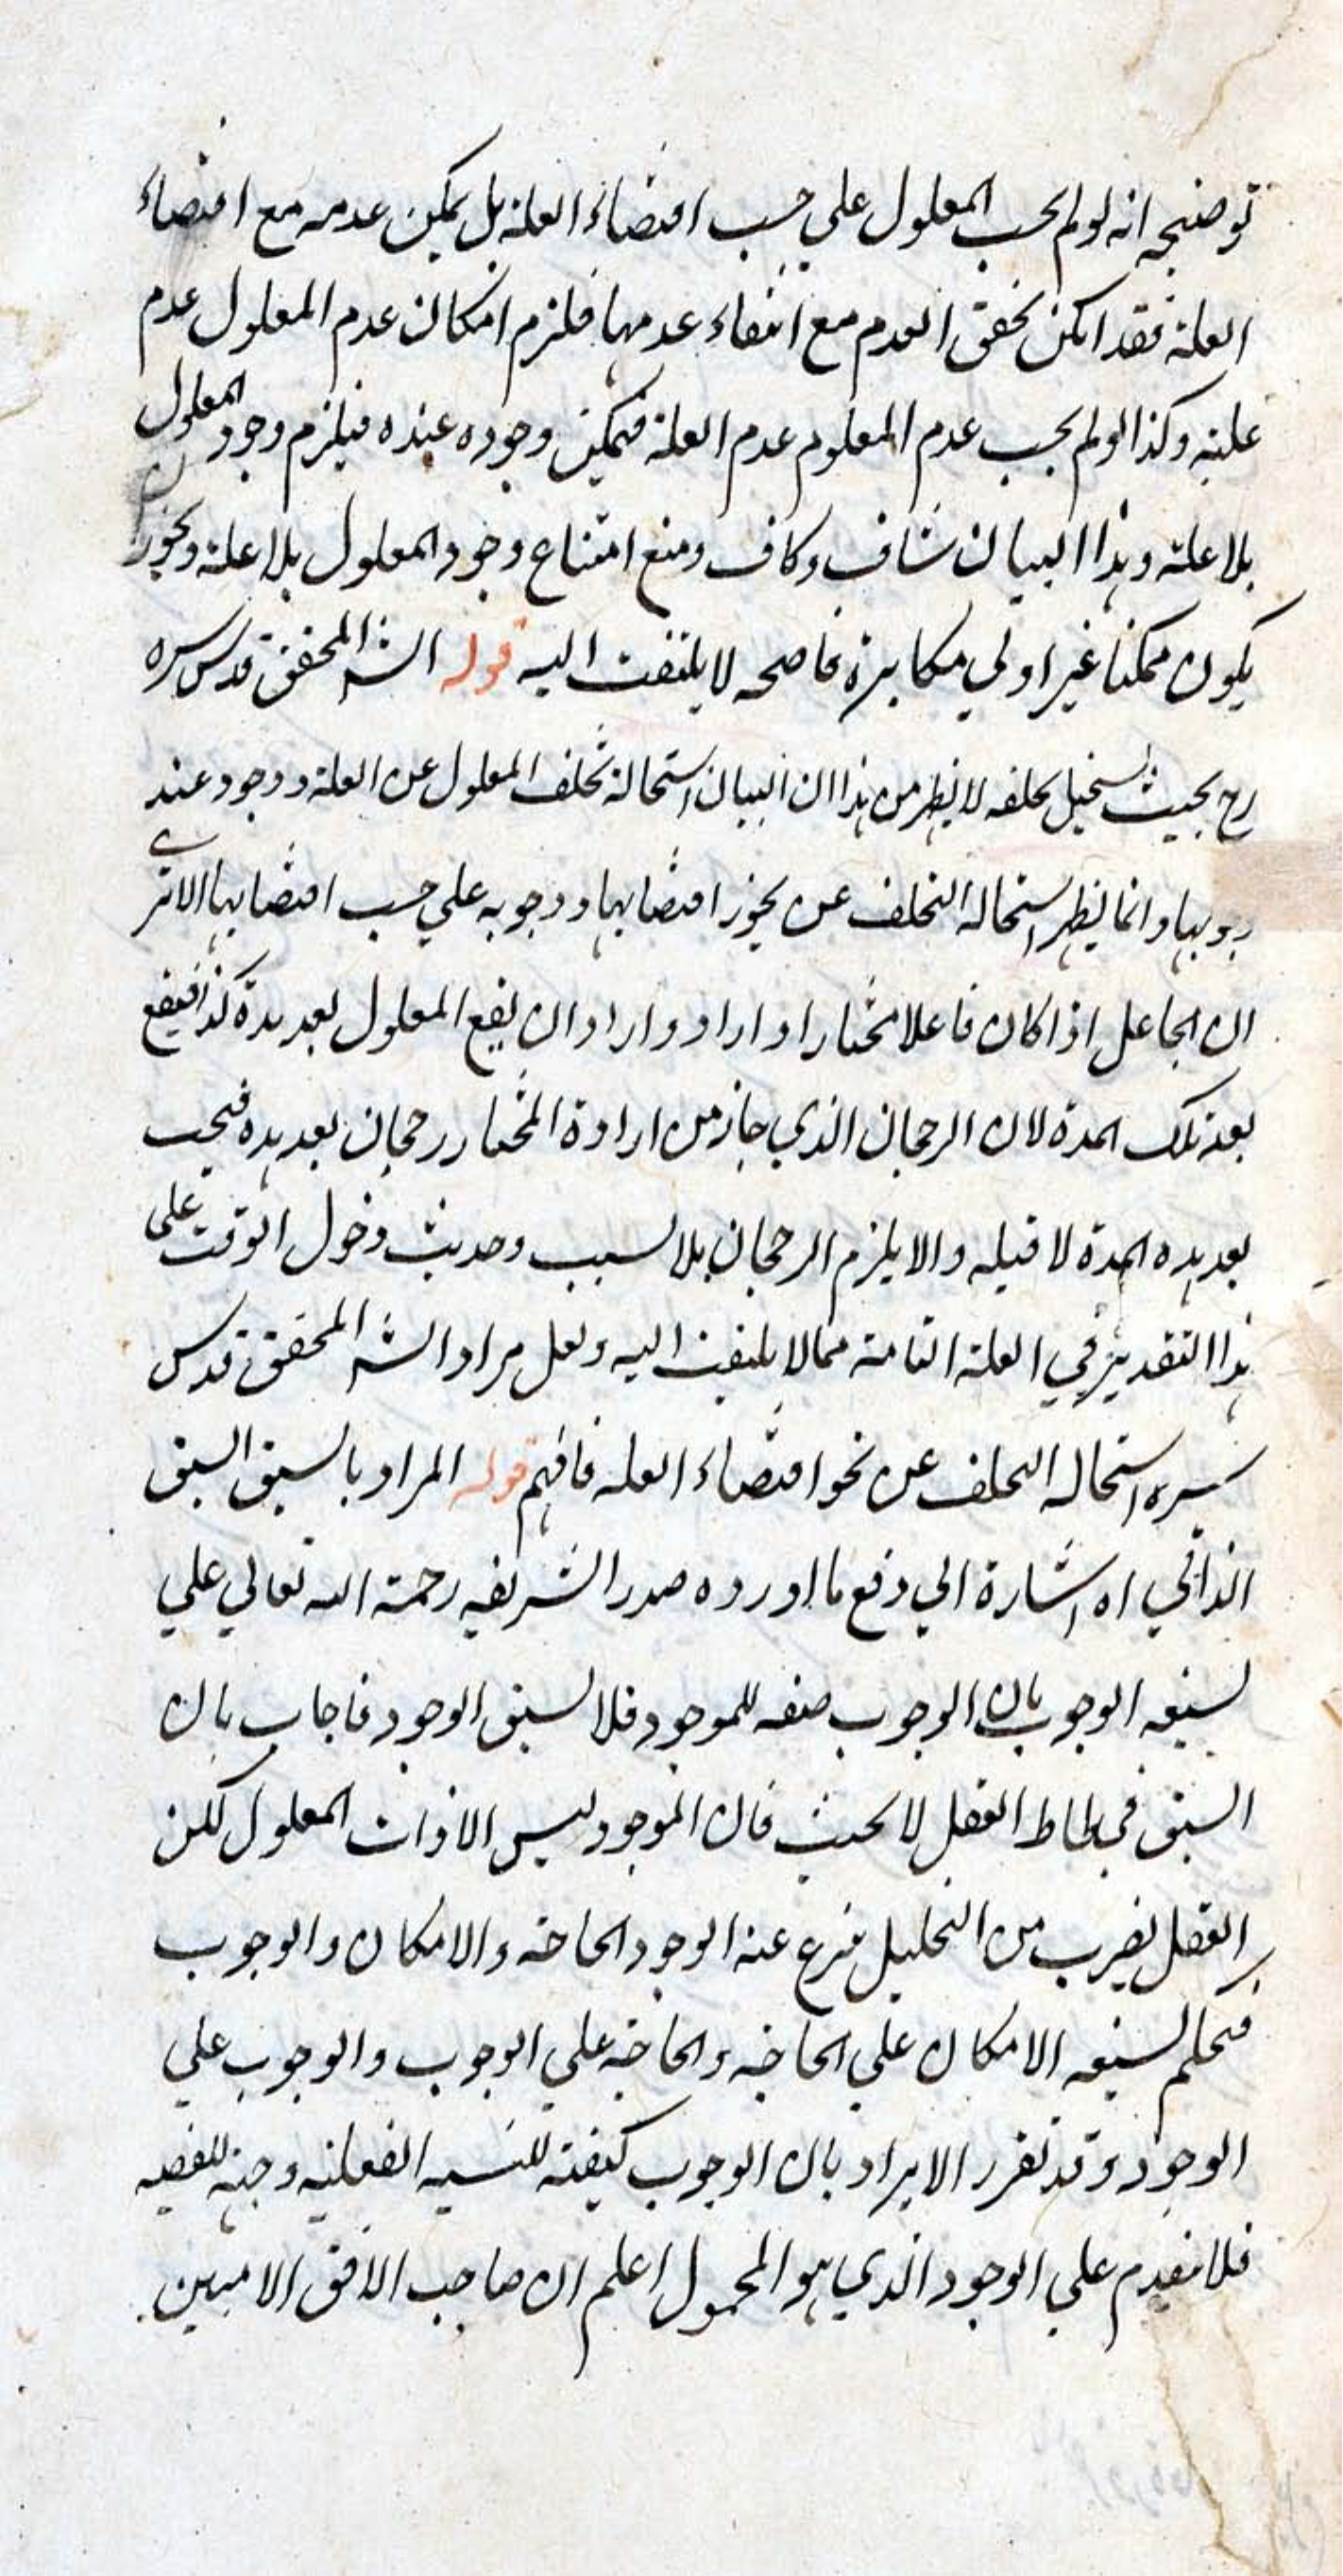 توضيحه انه لو لم يجب المعلول علي حسب اقتضاء العلة بل يمكن عدمه مع اقتضاء
العلة فقد امكن تحقق العدم مع انتفاء عدمها فلزم امكان عدم المعلول عدم
علته وكذا لو لم يجب عدم المعلوم عدم العلة فيمكن وجوده عنده فيلزم وجود المعلول
بلا علة وهذا البيان شاف وكاف ومنع امتناع وجود المعلول بلا علة وتجويز ان
يكون ممكنا غير اولي مكابرة فاضحه لا يلتفت اليه قوله الشه المحقق قدس سره
رح بحيث يستحيل تخلفه لا يظهر من هذا ان البيان استحالة تخلف المعلول عن العلة ووجود عند
وجوبها وانما يظهر استحالة التخلف عن نحو اقتضايها ووجوبه علي حسب اقتضايها الا تري
ان الجاعل اذا كان فاعلا مختارا و اراد و اراد ان يقع المعلول بعد مدة كذا فيقع
بعد تلك المدة لان الرحجان الذي جاز من ارادة المختار رحجان بعد هذه فيجب
بعد هذه المدة لا قبله والا يلزم الرحجان بلا سبب وحديث دخول الوقت علي
هذا التقدير في العلة التامة مما لا يلتفت اليه ولعل مراد الشه المحقق قدس
سره استحاله التخلف عن نحو اقتضاء العله فافهم قوله المراد بالسبق السبق
الذاتي اه اشارة الي دفع ما اورده صدر الشريعه رحمة الله تعالي علي
سبقه الوجوب بان الوجوب صفه للموجود فلا يسبق الوجود فاجاب بان
السبق في لحاظ العقل لا بحيث فان الموجود ليس الا ذات المعلول لكن
العقل بضرب من التحليل ينزع عنه الوجود الحاجة والامكان والوجوب
فيحكم بسبقه الامكان علي الحاجه والحاجة علي الوجوب والوجوب علي
الوجود وقد تقرر الايراد بان الوجوب كيفية للنسبه الفعليه وجهة للقضيه
فلا يتقدم علي الوجود الذي هو المحمول اعلم ان صاحب الافق الامبين